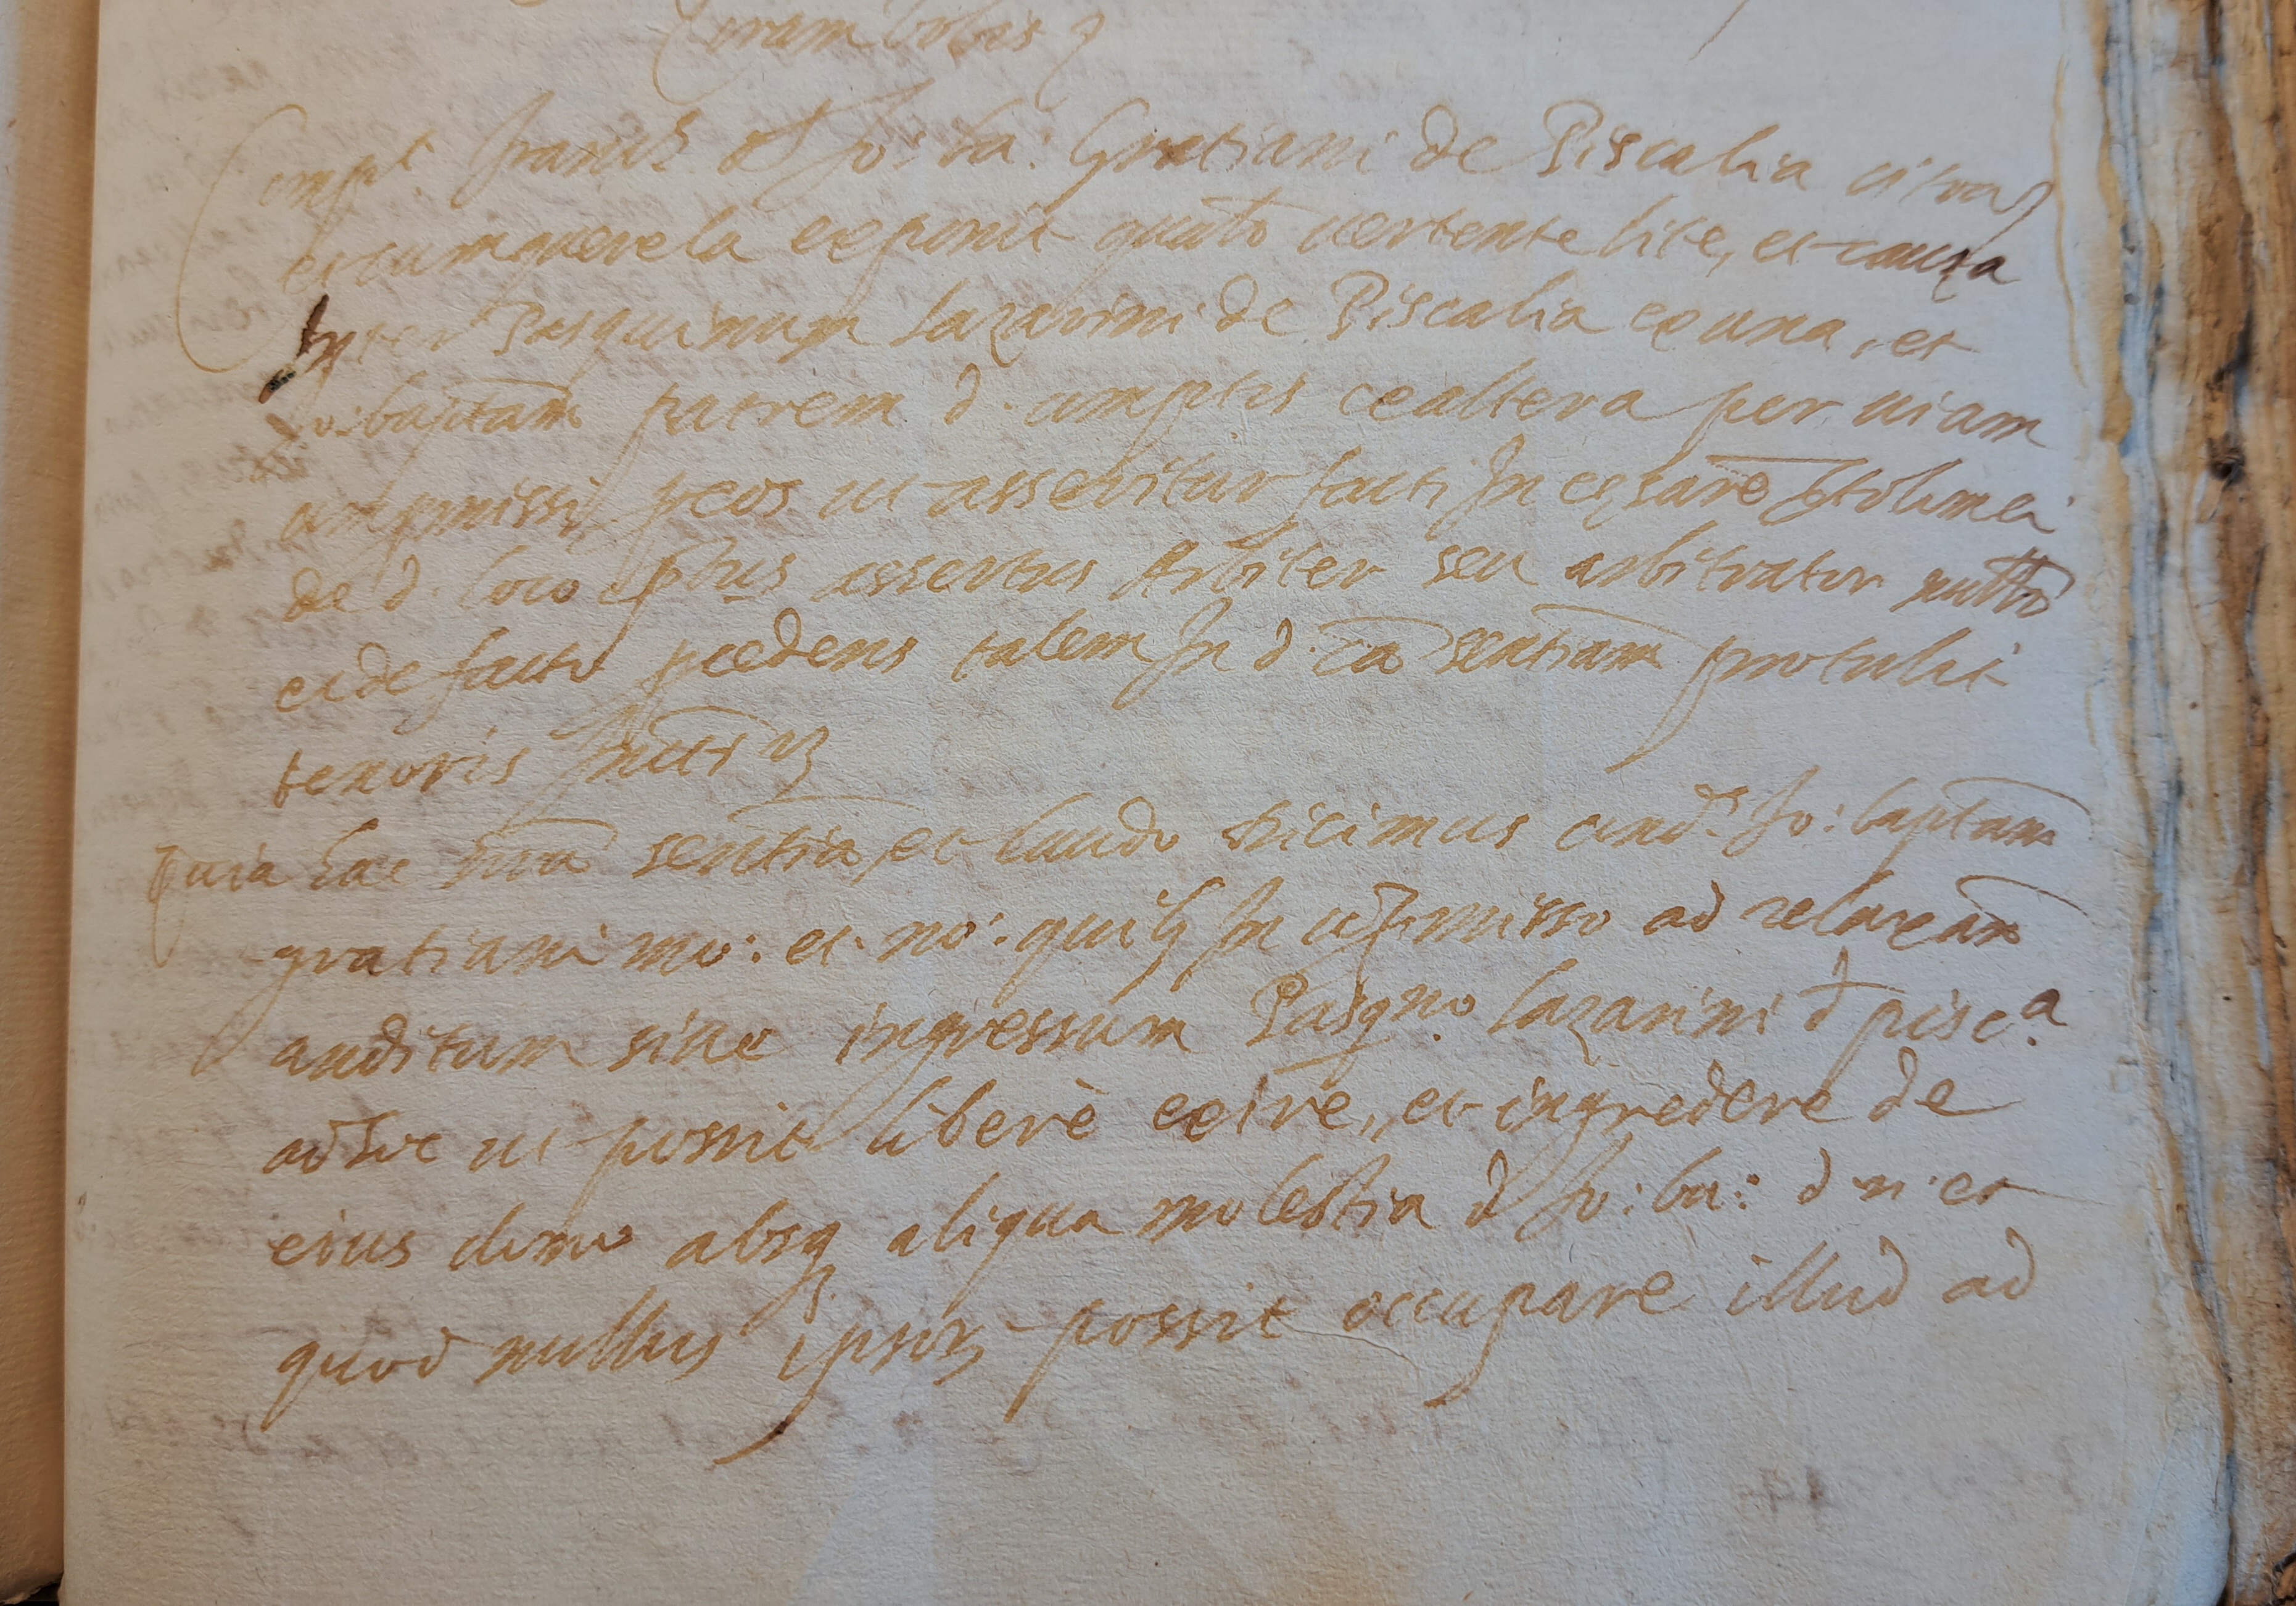 Coram vobis
Comp.t Franc.s Jo: ba: Gratiani de Piscalia citra
et cum querela exponit quāto vertente lite, et causa
Inter Pasquinum Lazarini de Piscalia ex una, et
Jo: baptam patrem d. comptis ex altera per viam
compromissi p eos ut asseritur facti In Cesarē
de d. loco assertus Arbiter seu arbitrator
et de facto pcedens talem In d. cā sentiam protulit
tenoris
Quia hac nrā sentia, et laudo dicimus cond. Jo: baptam
gratiani mo: et no: quib In ad relaxan
anditum sive ingressum Pasqno Lazarini d pisc.a
ad hoc ut possit liberè exire, et ingredere de
eius domo absq aliqua molestia d Jo: ba: d n. et
quod nullus ipsor possit occupare illud ad